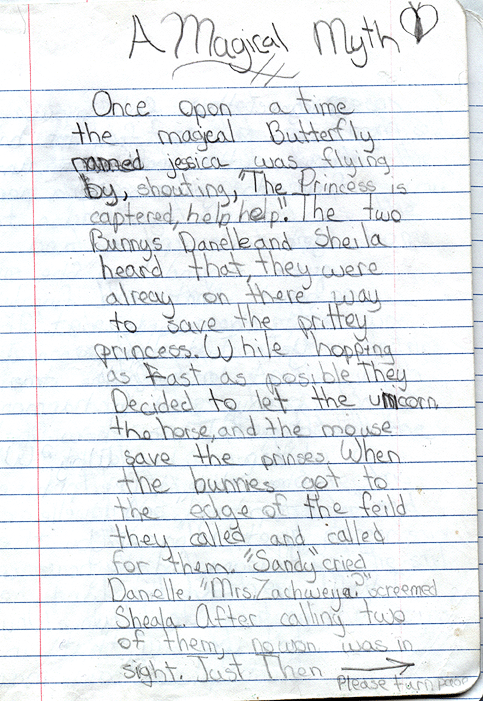 A Magical Myth
Once upon a time
the magcal Butterfly
named jessica was flying
by, shouting, "The Princess is
captered, help help". The two
Bunnys Danelle and Sheila
heard that, they were
alreay on there way
to save the prittey
princess. While hopping
as fast as posible They
Decided to let the unicorn,
the horse, and the mouse
save the prinses. When
the bunnies got to
the edge of the feild
they called and called
for them. "Sandy" cried
Danelle. "Mrs. Zachweija?" screemed
Sheala. After calling two
of them, nowon was in
sight. Just Then →
Please turn page